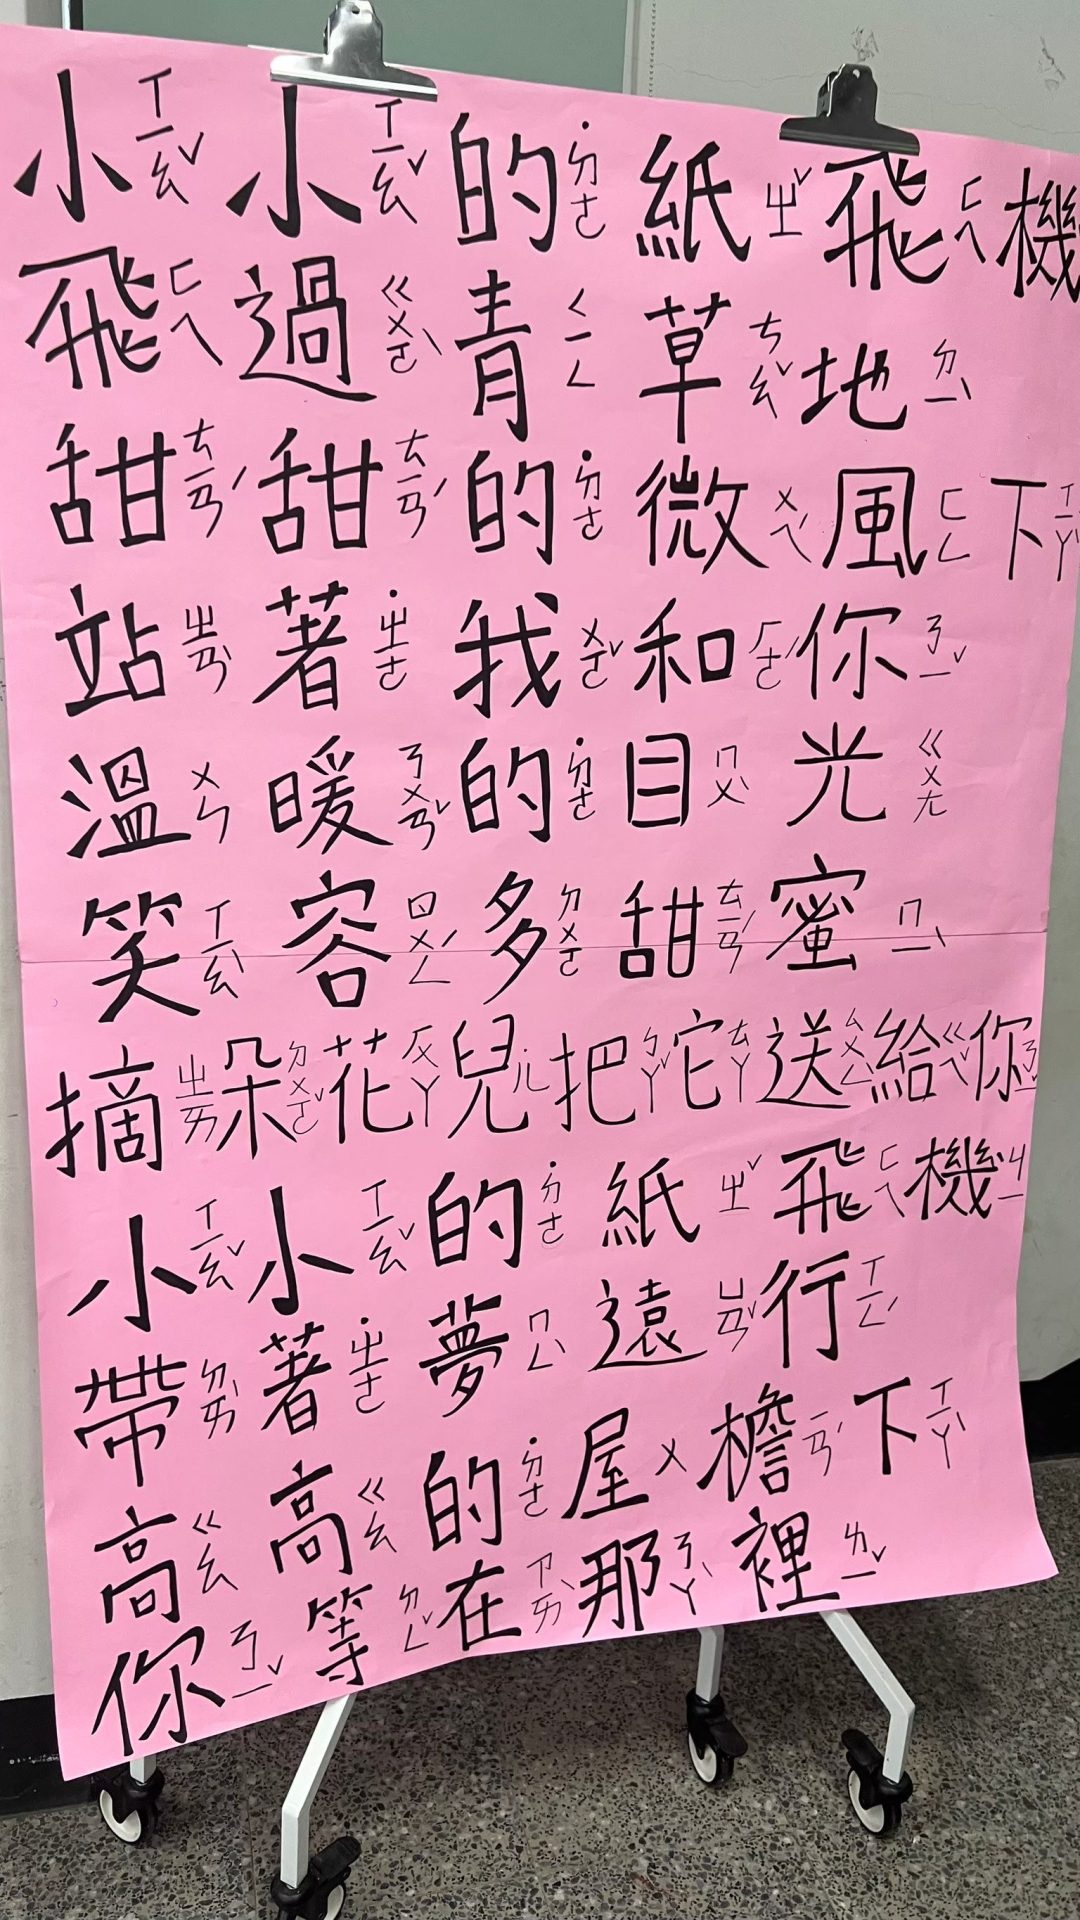 小ㄒㄧㄠˇ小ㄒㄧㄠˇ的˙ㄉㄜ紙ㄓˇ飛ㄈㄟ機
飛ㄈㄟ過ㄍㄨㄛˋ青ㄑㄧㄥ草ㄘㄠˇ地ㄉㄧˋ
甜ㄊㄧㄢˊ甜ㄊㄧㄢˊ的˙ㄉㄜ微ㄨㄟˊ風ㄈㄥ下ㄒㄧㄚˋ
站ㄓㄢˋ著˙ㄓㄜ我ㄨㄛˇ和ㄏㄜˊ你ㄋㄧˇ
溫ㄨㄣ暖ㄋㄨㄢˇ的˙ㄉㄜ目ㄇㄨˋ光ㄍㄨㄤ
笑ㄒㄧㄠˋ容ㄖㄨㄥˊ多ㄉㄨㄛ甜ㄊㄧㄢˊ蜜ㄇㄧˋ
摘ㄓㄞ朵ㄉㄨㄛˇ花ㄏㄨㄚ兒ㄦ把ㄅㄚˇ它ㄊㄚ送ㄙㄨㄥˋ給ㄍㄟˇ你ㄋㄧˇ
小ㄒㄧㄠˇ小ㄒㄧㄠˇ的˙ㄉㄜ紙ㄓˇ飛ㄈㄟ機ㄐㄧ
帶ㄉㄞˋ著˙ㄓㄜ夢ㄇㄥˋ遠ㄩㄢˇ行ㄒㄧㄥˊ
高ㄍㄠ高ㄍㄠ的˙ㄉㄜ屋ㄨ檐ㄧㄢˊ下ㄒㄧㄚˋ
你ㄋㄧˇ等ㄉㄥˇ在ㄗㄞˋ那ㄋㄚˋ裡ㄌㄧˇ